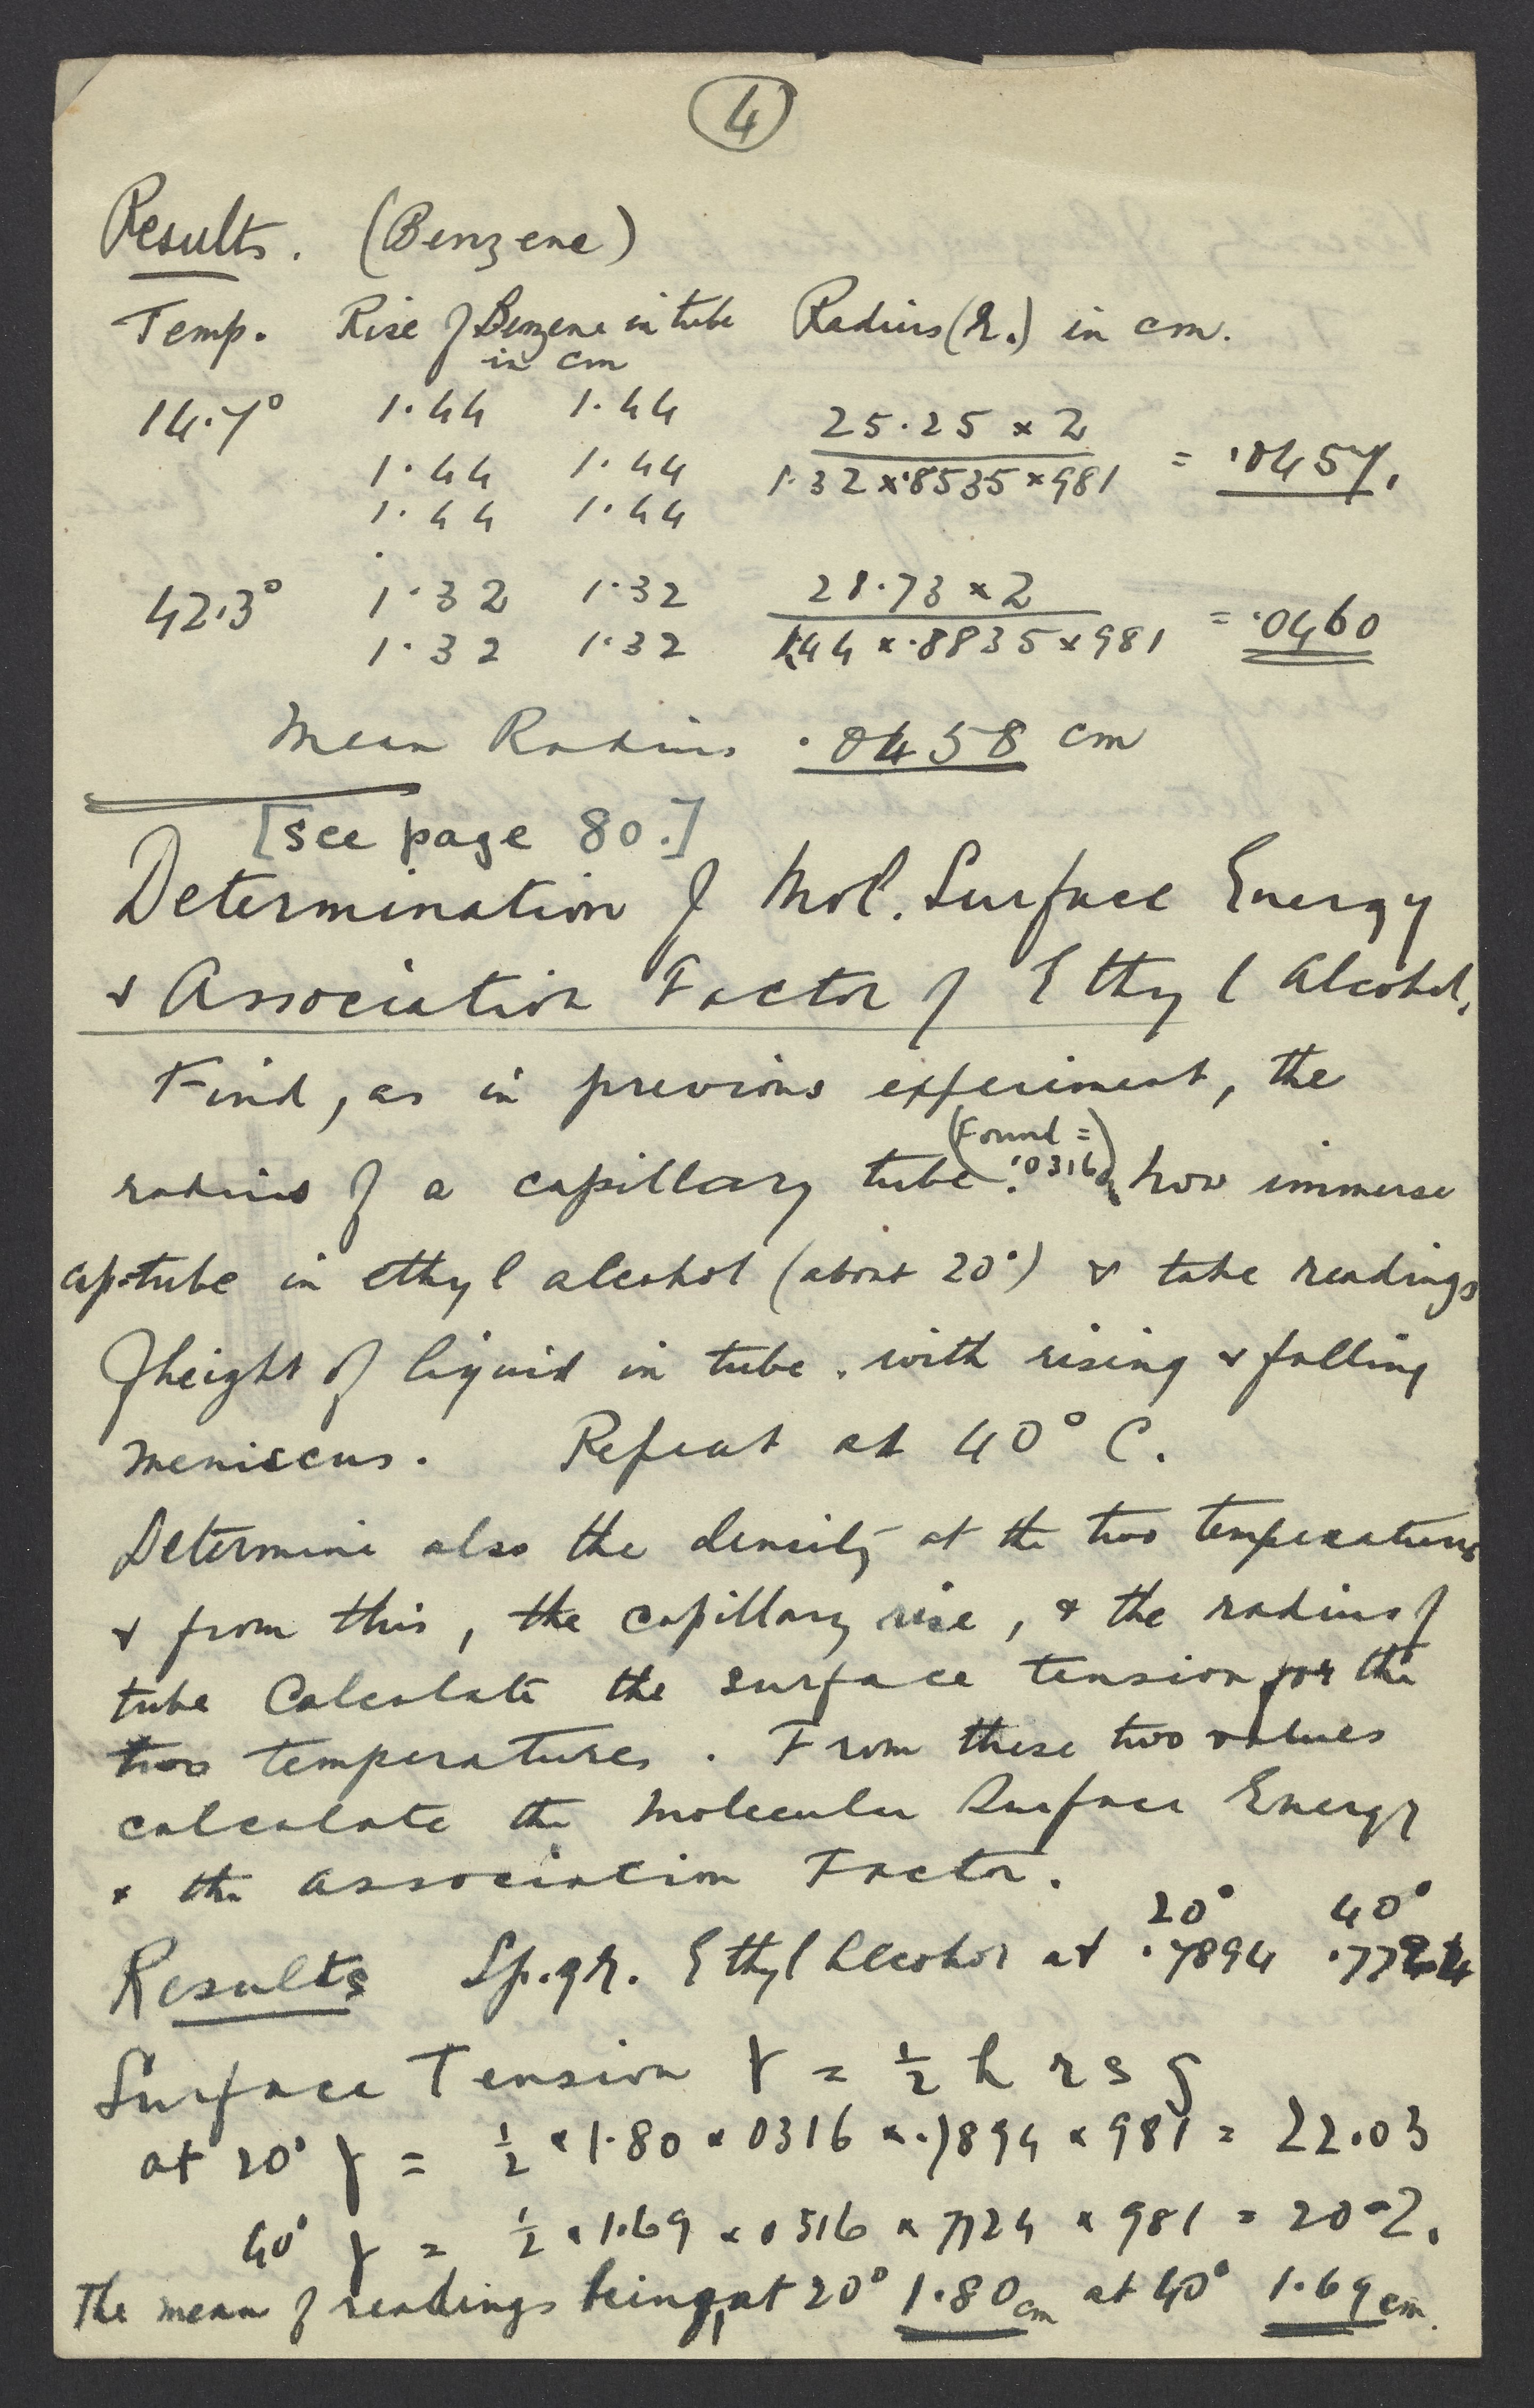 4
Results. (Benzene)
Temp. Rise of Benzene in tube Radius (r.) in cm.
in cm
14.7° 1.44 1.44 25.25 × 2
1.44 1.44 1.32 × .8535 × 981 = .0457.
1.44 1.44
42.3° 1.32 1.32 28.73 × 2
1.32 1.32 1.44 × .8835 × 981 = .0460
Mean Radius .0458 cm
[See page 80.]
Determination of Mol. Surface Energy
& Association Factor of Ethyl Alcohol.
Find, as in previous experiment, the
(Found =
radius of a capillary tube. .0316) now immerse
cap-tube in ethyl alcohol (about 20°) & take readings
of height of liquid in tube. with rising & falling
meniscus. Repeat at 40° C.
Determine also the density at the two temperatures
& from this, the capillary rise, & the radius of
tube Calculate the surface tension for the
two temperatures. From these two values
calculate the Molecular Surface Energy
& the association Factor.
20° 40°
Results Sp. gr. Ethyl Alcohol at .7894 .7724
Surface Tension γ = ½ h r s g
at 20° γ = ½ × 1.80 × 0316 × .7894 × 981 = 22.03
40° γ = ½ × 1.69 × 0316 × 7724 × 981 = 20.2.
The mean of readings being, at 20° 1.80 cm at 40° 1.69 cm.